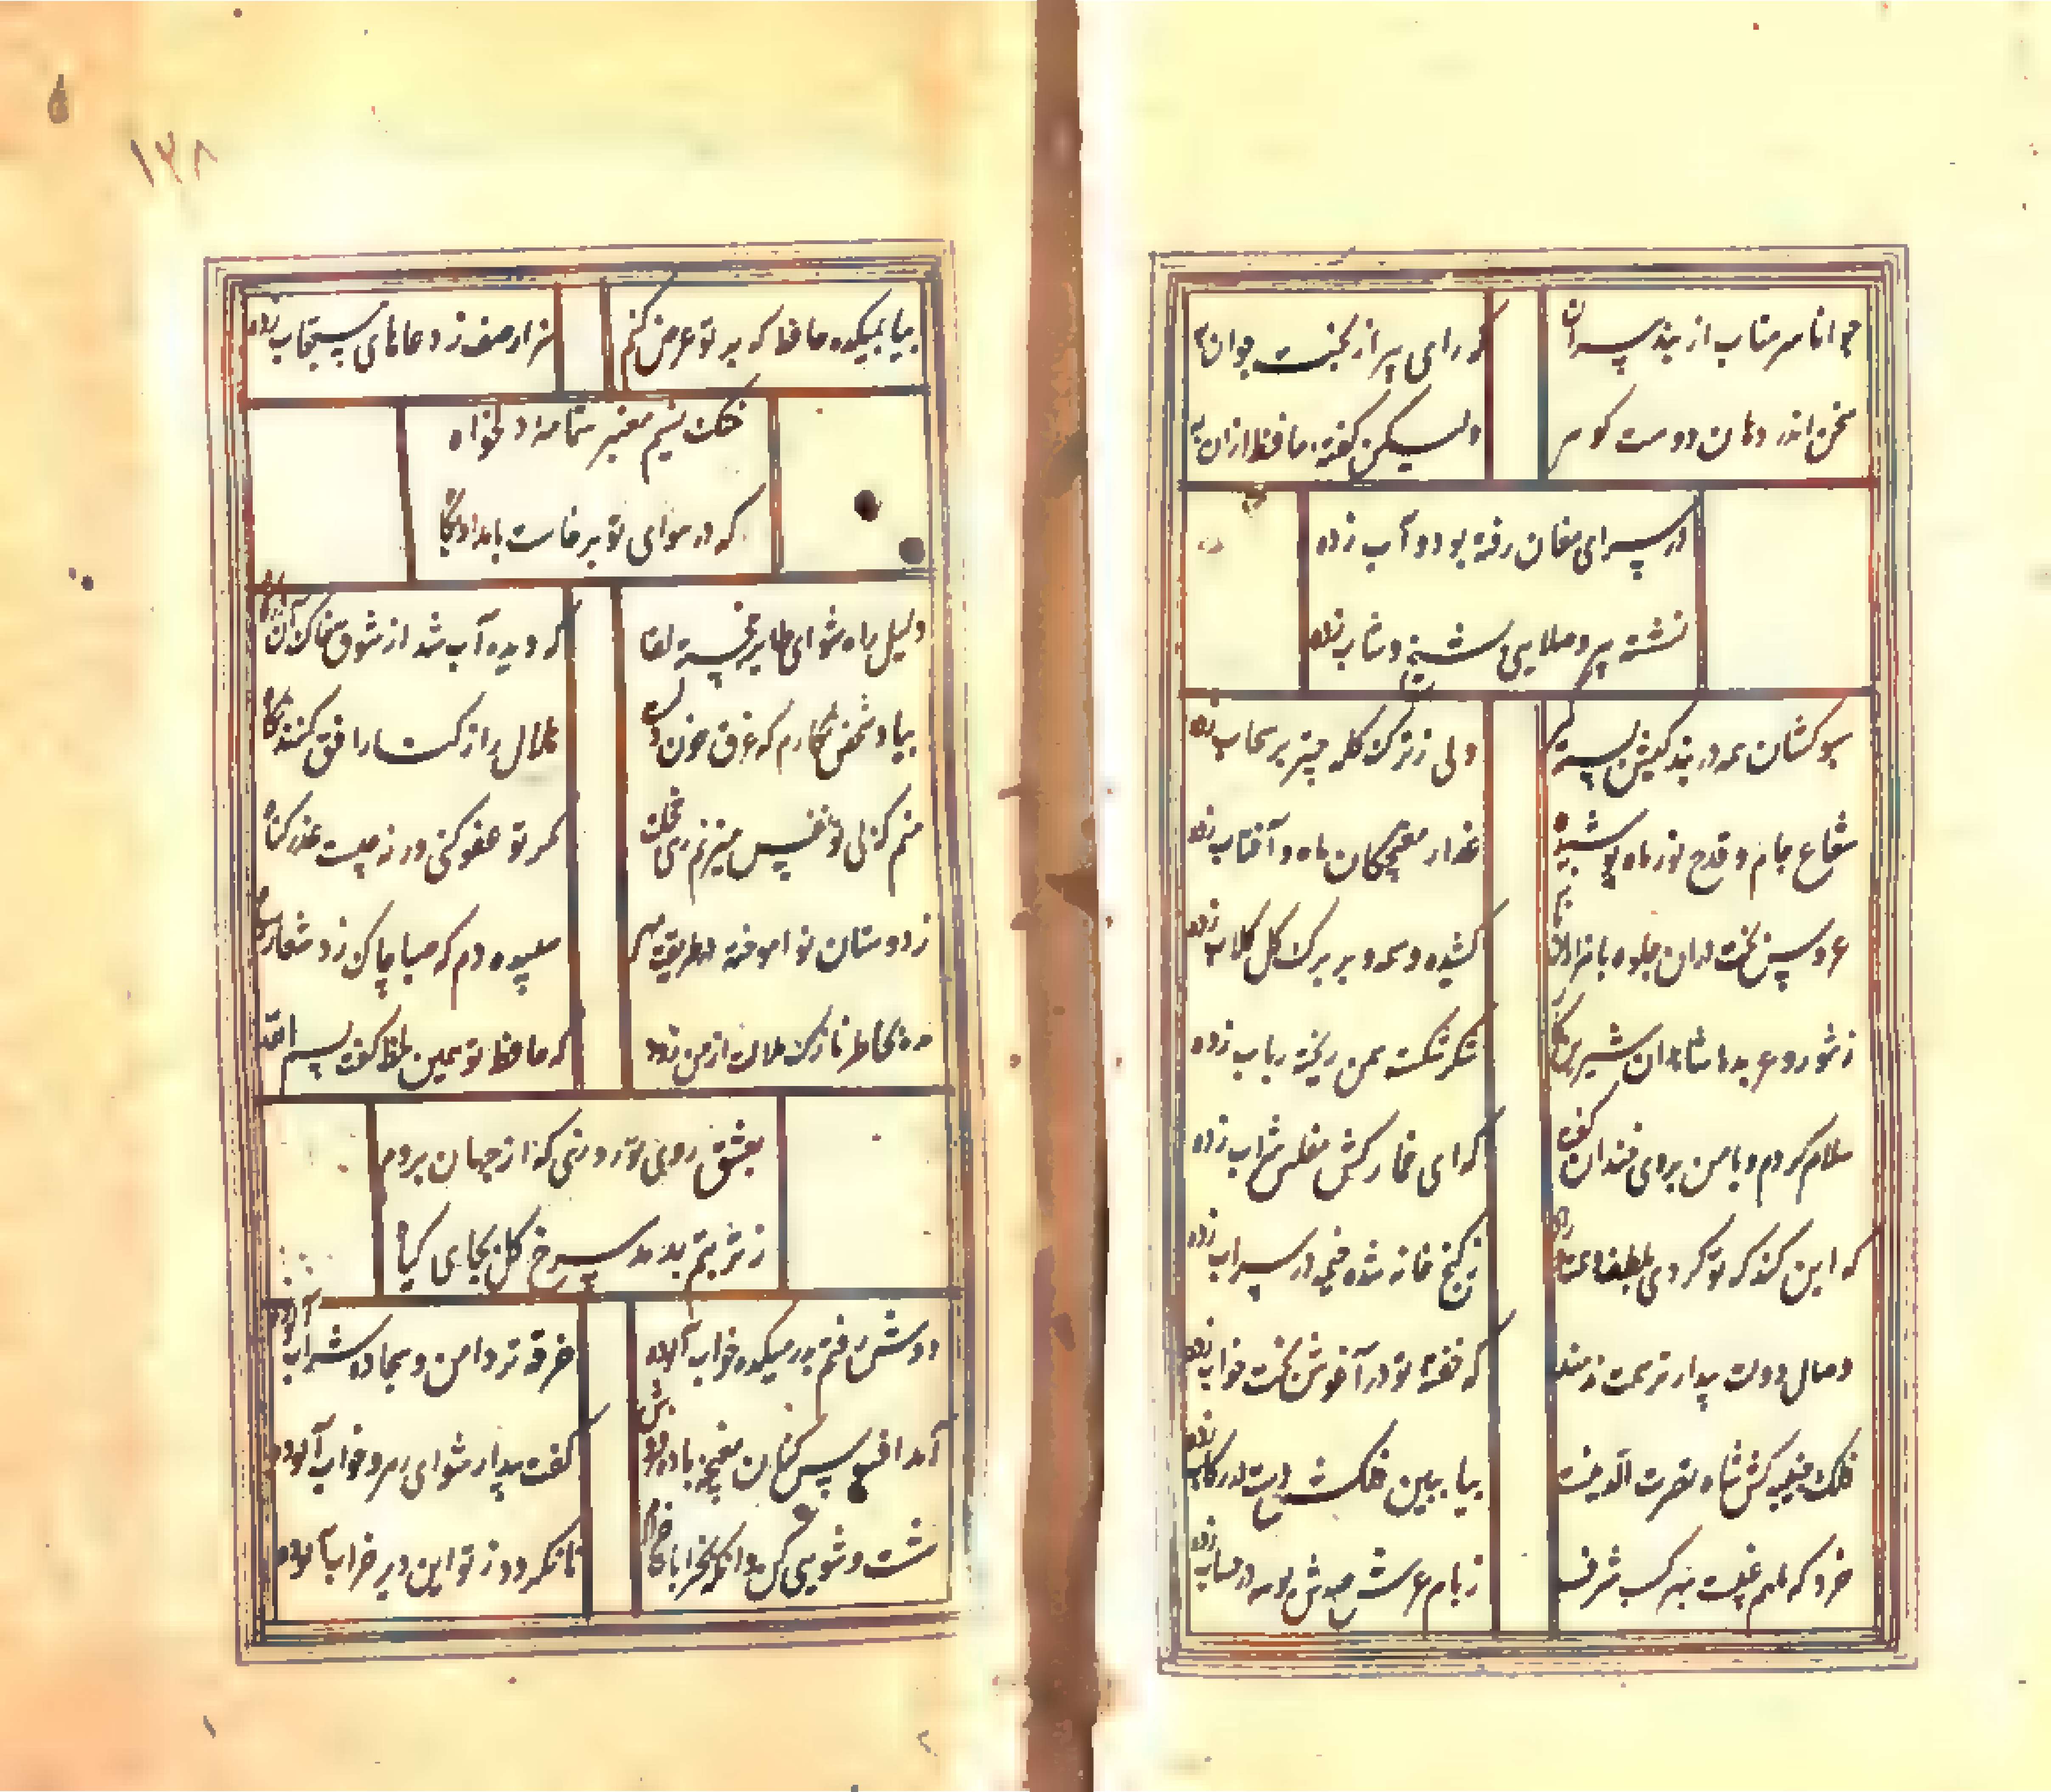 جوانا سر متاب از پند پیران
که رای پیر از بخت جوان به
سخن اندر دهان دوست گوهر
ولیکن گفته حافظ ازان به
در سرای مغان رفته بود و آب زده
نشسته پیر و صلایی بشیخ و شاب زده
سبوکشان همه در بندگیش بسته کمر
ولی ز ترک کله چتر بر سحاب زده
شعاع جام و قدح نور ماه پوشیده
عذار مغبچگان ماه و آفتاب زده
عروس بخت دران حجله با هزاران ناز
کشیده وسمه و بر برگ گل گلاب زده
ز شور و عربده شاهدان شیرین کار
شکر شکسته سمن ریخته رباب زده
سلام کردم و با من بروی خندان گفت
که ای خمارکش مفلس شراب زده
که این کند که تو کردی بضعف همت و رای
ز گنج خانه شده خیمه در سراب زده
وصال دولت بیدار ترسمت ندهند
که خفته تو در آغوش بخت خواب زده
فلک جنیبه کش شاه نصرت الدینست
بیا ببین فلکش دست در رکاب زده
خرد که ملهم غیبست بهر کسب شرف
ز بام عرش صدش بوسه در جناب زده
۱۳۸
بیا بمیکده حافظ که بر تو عرض کنم
هزار صف ز دعاهای مستجاب زده
خنک نسیم معنبر شمامه دلخواه
که در هوای تو برخاست بامداد پگاه
دلیل راه شو ای طایر خجسته لقا
که دیده آب شد از شوق خاک آن درگاه
بیاد شخص نگارم که غرق خون دلست
هلال را ز کنار افق کنند نگاه
منم که بی تو نفس میزنم زهی خجلت
مگر تو عفو کنی ورنه چیست عذر گناه
ز دوستان تو آموخت در طریقت مهر
سپیده دم که صبا چاک زد شعار سیاه
مده بخاطر نازک ملالت از من زود
که حافظ تو همین لحظه گفت بسم الله
بعشق روی تو روزی که از جهان بروم
ز تربتم بدمد سرخ گل بجای گیاه
دوش رفتم بدر میکده خواب آلوده
خرقه تر دامن و سجاده شراب آلوده
آمد افسوس کنان مغبچه باده فروش
گفت بیدار شو ای رهرو خواب آلوده
شست و شویی کن و آنگه بخرابات خرام
تا نگردد ز تو این دیر خراب آلوده